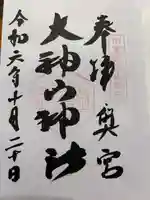 奉拝 奥宮
大神山神社
令和六年十月二十日